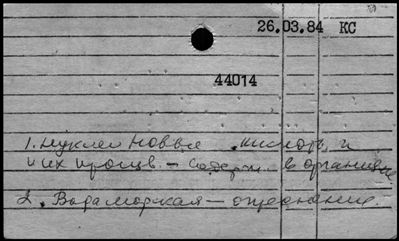 26.03.84 КС
44014
1. Нуклеиновые кислоты и
их произв. – содерж. в организме
2. Вода морская – опреснение.